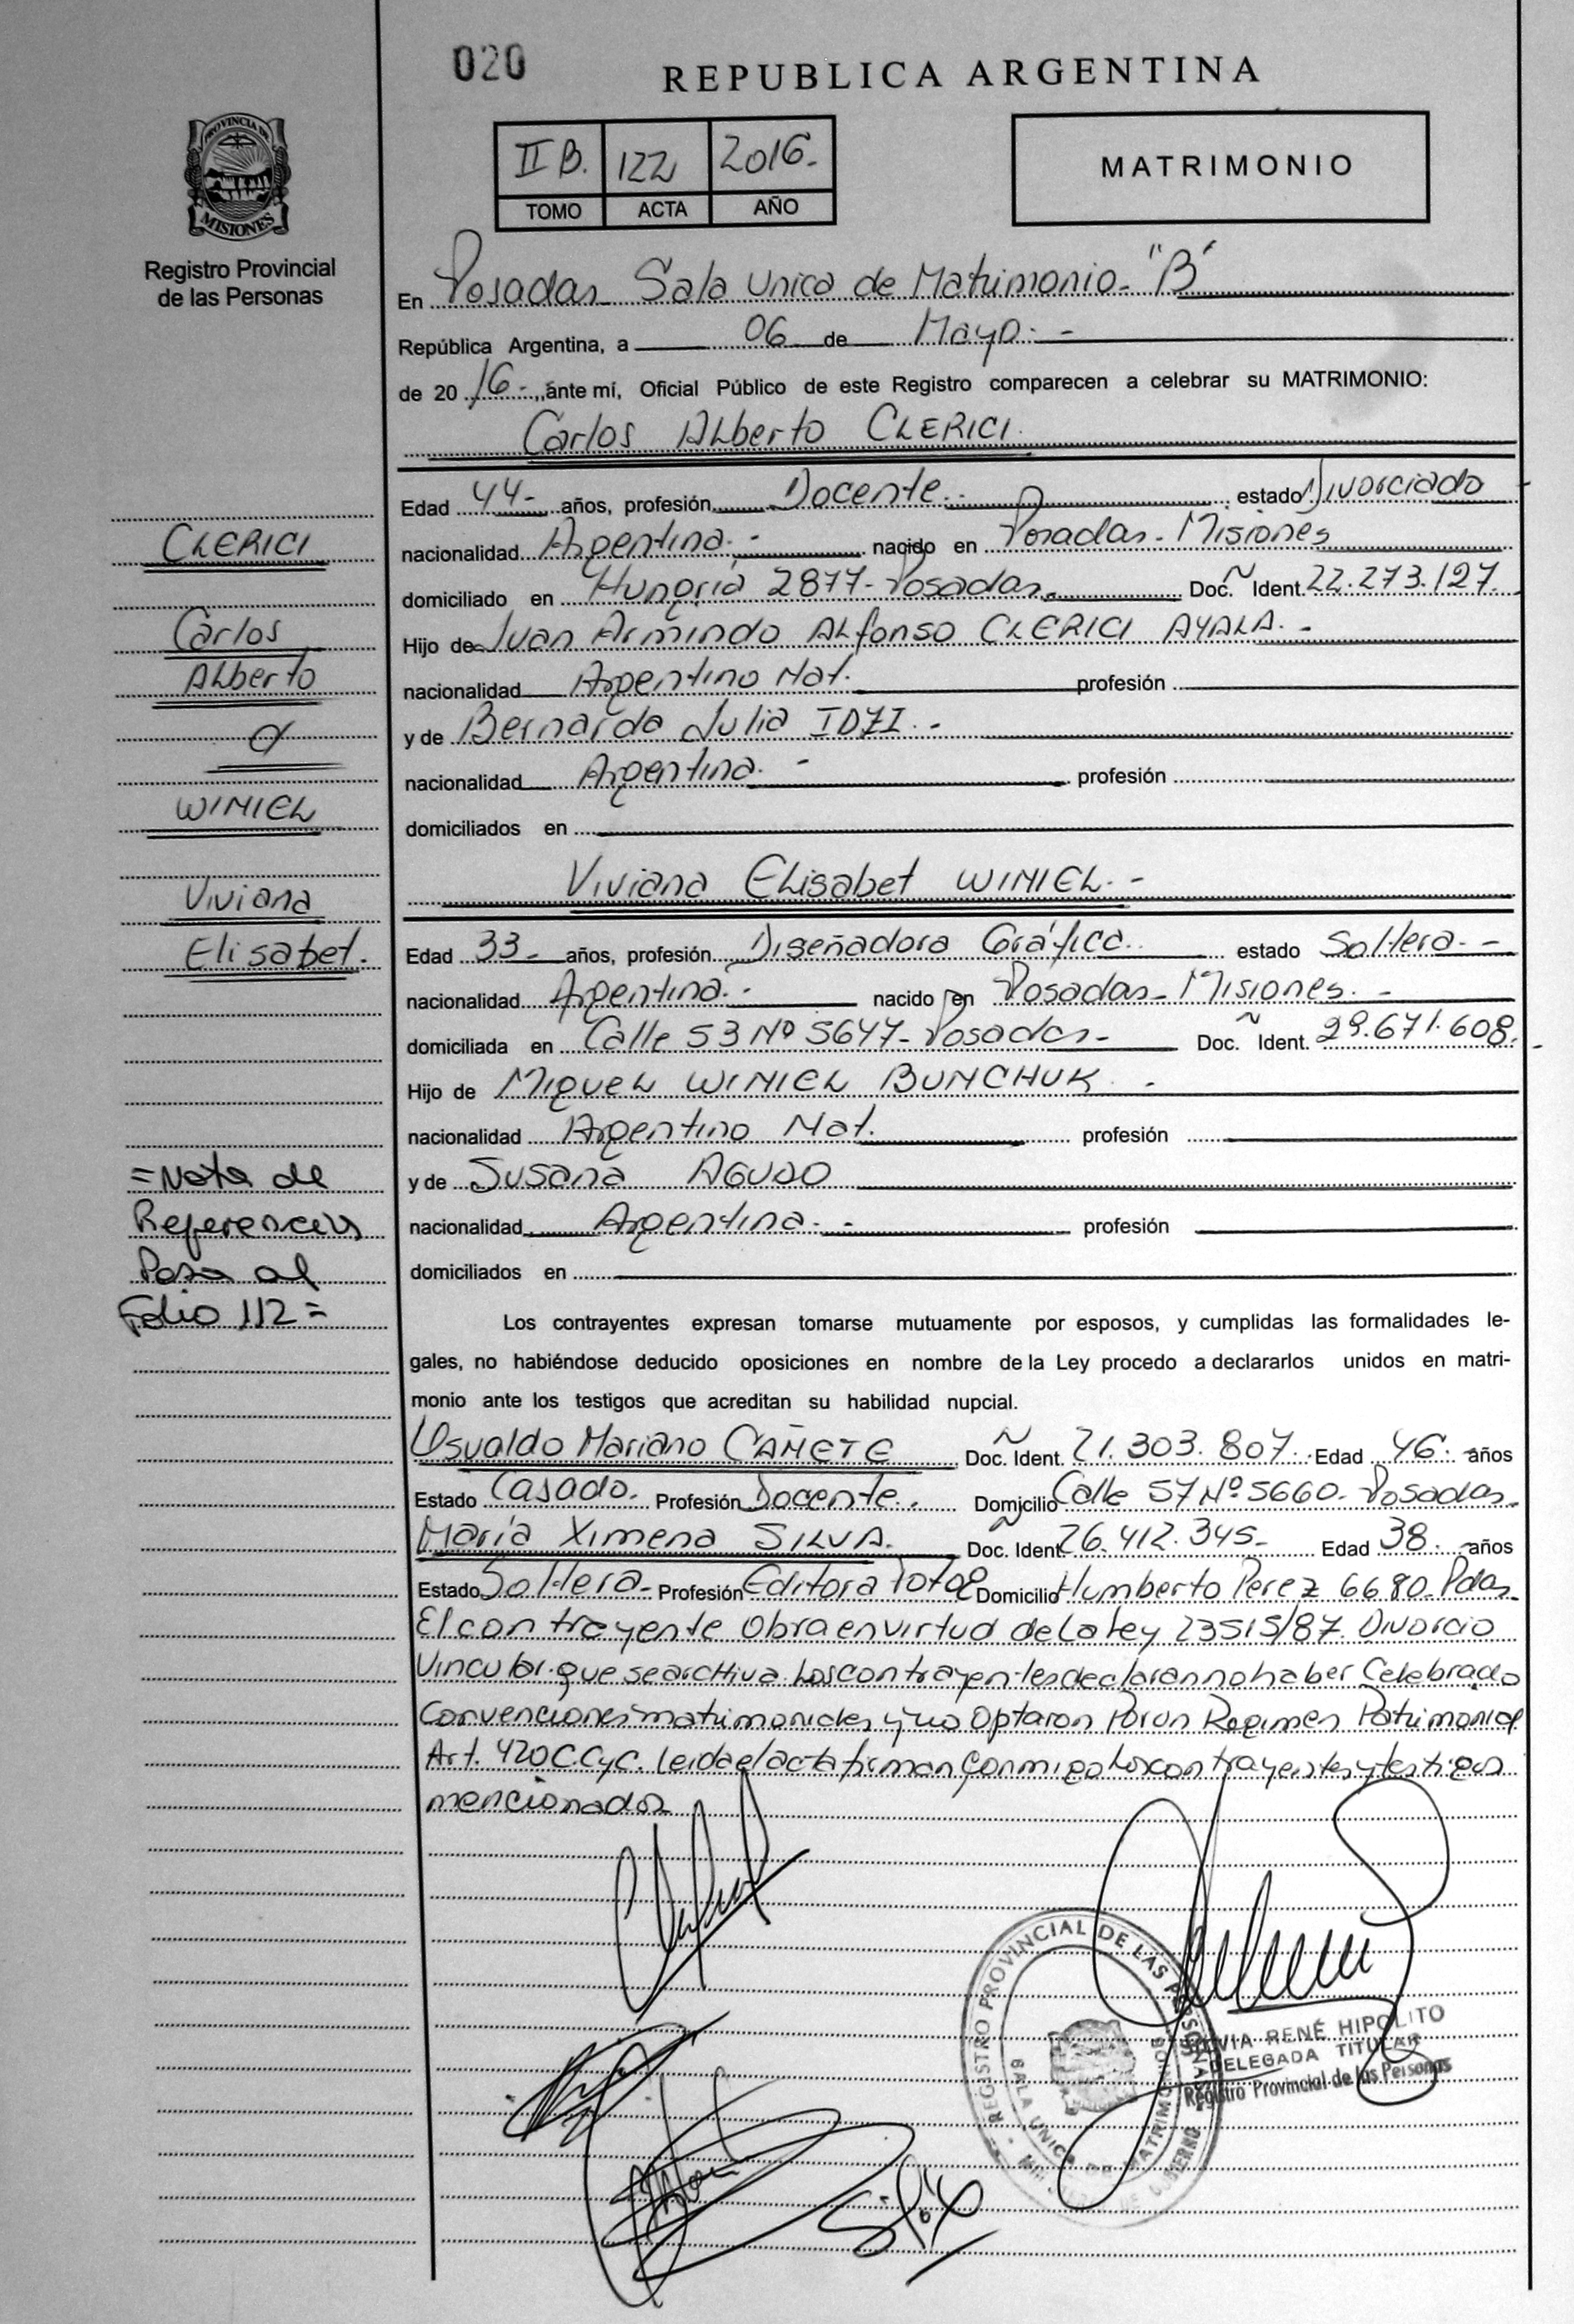 020
REPUBLICA ARGENTINA
PROVINCIA DE
MISIONES
Registro Provincial
de las Personas
II B. 122 2016.-
TOMO ACTA AÑO
MATRIMONIO
En Posadas - Sala Unica de Matrimonio - "B"
República Argentina, a 06 de Mayo.- -
de 2016.-, ante mí, Oficial Público de este Registro comparecen a celebrar su MATRIMONIO:
Carlos ALberto CLERICI.
Edad 44- años, profesión Docente.- estado Divorciado -
nacionalidad Argentina.- - nacido en Posadas - Misiones
domiciliado en Hungría 2877- Posadas.- Doc. Ident. 22.273.127.
Hijo de Juan Armindo ALfonso CLERICI AYALA.-
nacionalidad Argentino Nat. profesión
y de Bernarda Julia IDZI.-
nacionalidad Argentina.- profesión
domiciliados en
Viviana Elisabet WINIEL.-
Edad 33- años, profesión Diseñadora Gráfica.- estado Soltera.-
nacionalidad Argentina.- nacido en Posadas - Misiones.-
domiciliada en Calle 53 Nº 5647- Posadas.- Doc. Ident. 29.671.608.-
Hijo de MIGUEL WINIEL BUNCHUK.-
nacionalidad Argentino Nat. profesión
y de Susana AGUDO
nacionalidad Argentina.- profesión
domiciliados en
CLERICI
Carlos
ALberto
WINIEL
Viviana
Elisabet.
=Nota de
Referencias
Pasa al
Folio 112=
Los contrayentes expresan tomarse mutuamente por esposos, y cumplidas las formalidades le-
gales, no habiéndose deducido oposiciones en nombre de la Ley procedo a declararlos unidos en matri-
monio ante los testigos que acreditan su habilidad nupcial.
Osvaldo Mariano CAÑETE Doc. Ident. 21.303.807.- Edad 46.- años
Estado Casado. Profesión Docente. Domicilio Calle 57 Nº 5660- Posadas.
María Ximena SILVA. Doc. Ident. 26.412.345- Edad 38.- años
Estado Soltera- Profesión Editora Domicilio Humberto Perez 6680- Pdas.
El contrayente Obra en virtud de La Ley 23515/87. Divorcio
Vincular que se archiva. Los contrayentes declaran no haber Celebrado
Convenciones matrimoniales y no Optaron Por un Regimen Patrimonial
Art. 420 C.C.y C. Leida el acta firman conmigo Los contrayentes y testigos
mencionados
REGISTRO PROVINCIAL DE LAS PERSONAS
SALA UNICA DE MATRIMONIO
SILVIA RENÉ HIPOLITO
DELEGADA TITULAR
Registro Provincial de las Personas